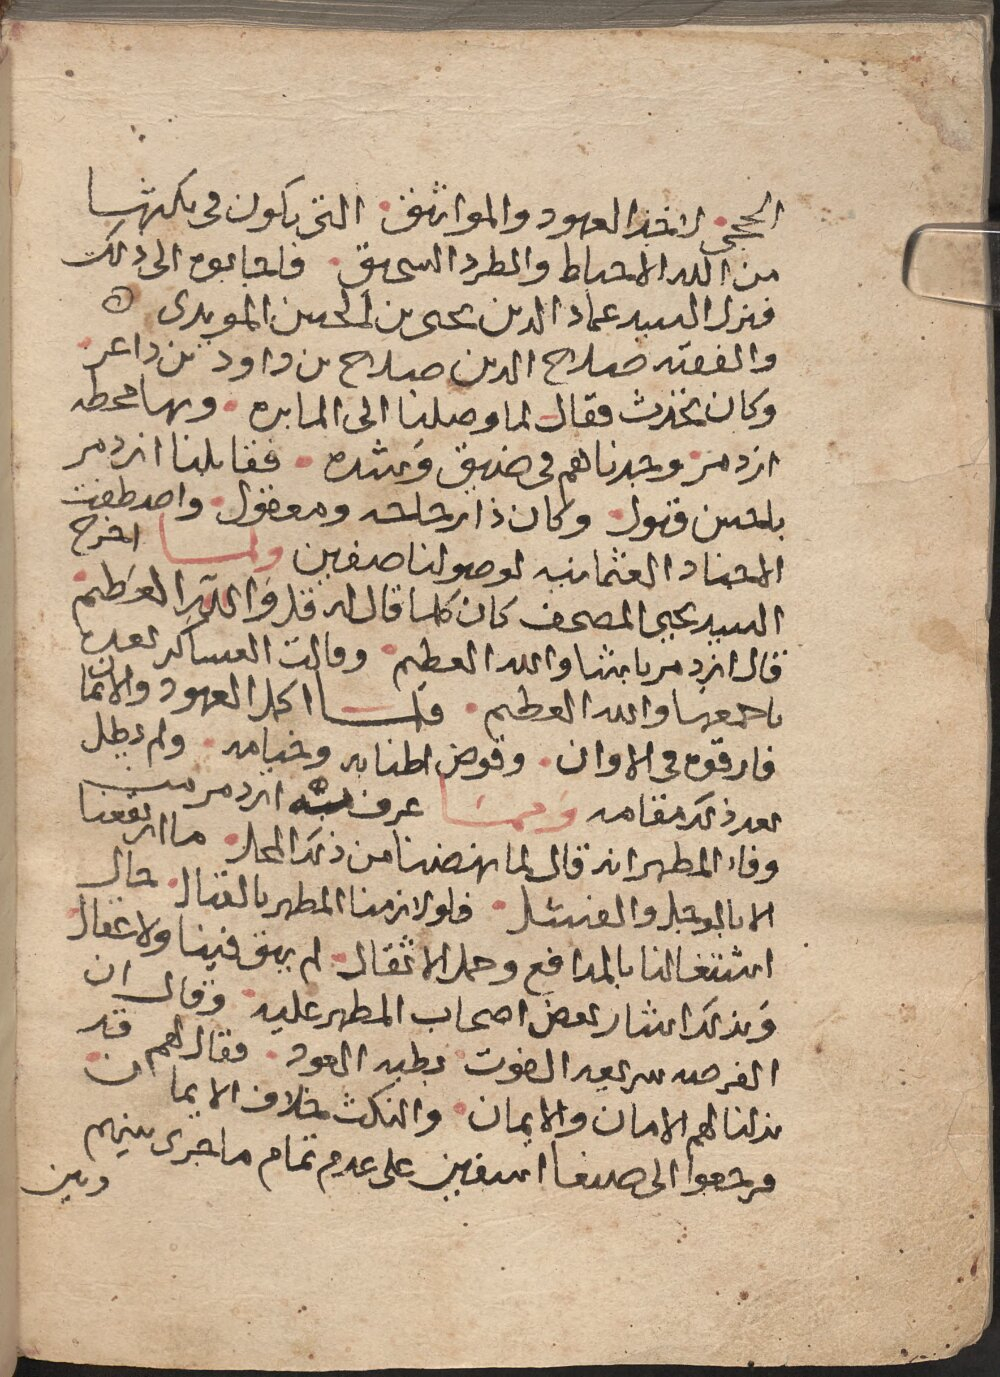 الحجى لاخذ العهود والمواثيق التى يكون فى نكثها
من الله الاحباط والطرد السحيق فاجابوه الى ذلك
فنزل السيد عماد الدين يحيى بن الحسين المويدى
والفقيه صلاح الدين صلاح بن داود بن داعر
وكان يحدث فقال لما وصلنا الى المابره وبها محطه
ازدمر وجدناهم فى ضيق وشده فقابلنا ازدمر
باحسن قبول وكان ذا رجاحه ومعقول واصطفت
الاجناد العثمانيه لوصولنا صفين ولما اخرج
السيد يحيى المصحف كان كلما قال له قل والله العظيم
قال ازدمر باشا والله العظيم وقالت العساكر بعده
باجمعها والله العظيم فلما اكمل العهود والايمان
فارقوه فى الاوان وقوض اطنابه وخيامه ولم يطل
بعد ذلك مقامه ومما عرف به ازدمر من
وفاء المطهر انه قال لما نهضنا من ذلك المحل ما ارتفعنا
الا بالوجل والفشل فلو لازمنا المطهر بالقتال حال
اشتغالنا بالمدافع وحمل الاثقال لم يبق فينا ولا عقال
وبذلك اشار بعض اصحاب المطهر عليه وقال ان
الفرصه سريعه الفوت بطيه العود فقال لهم قد
بذلنا لهم الامان والايمان والنكث خلاف الايمان
فرجعوا الى صنعا اسفين على عدم تمام ما جرى بينهم
وبين